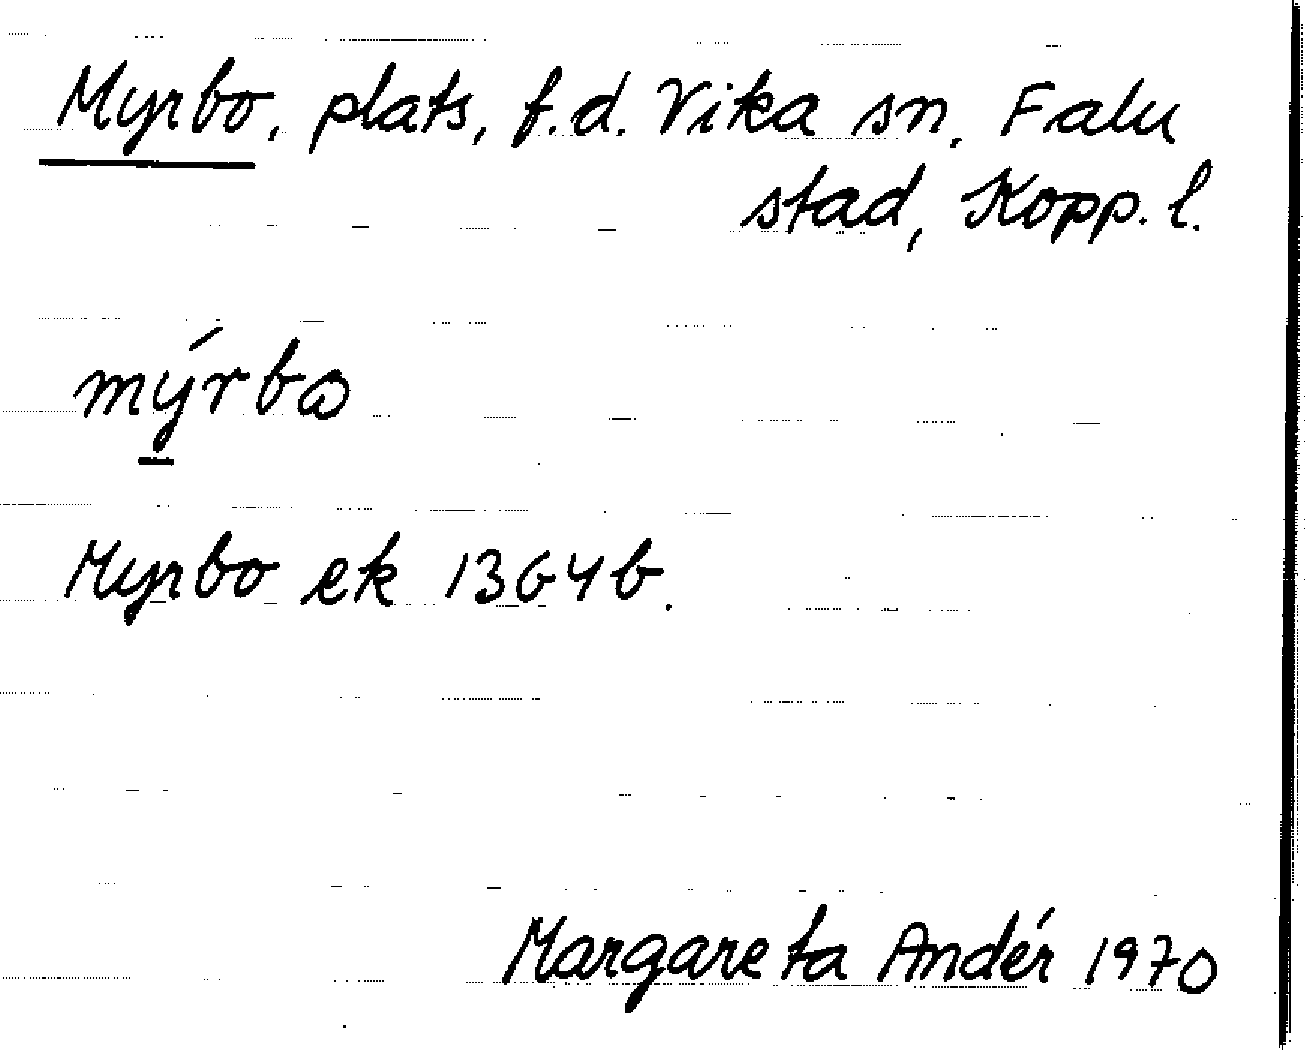 Myrbo, plats, f.d. Vika sn. Falu
stad, Kopp. l.
mýrbω
Myrbo ek 13G4b.
Margareta Andér 1970